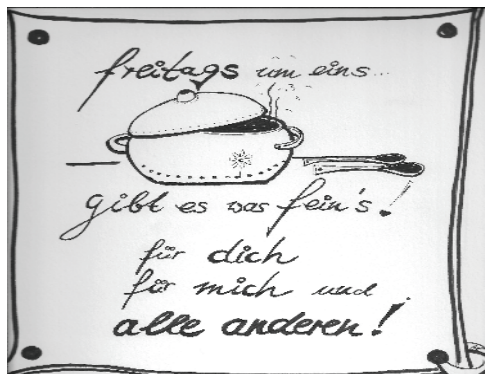 freitags um eins...
gibt es was fein's!
für dich
für mich und
alle anderen!